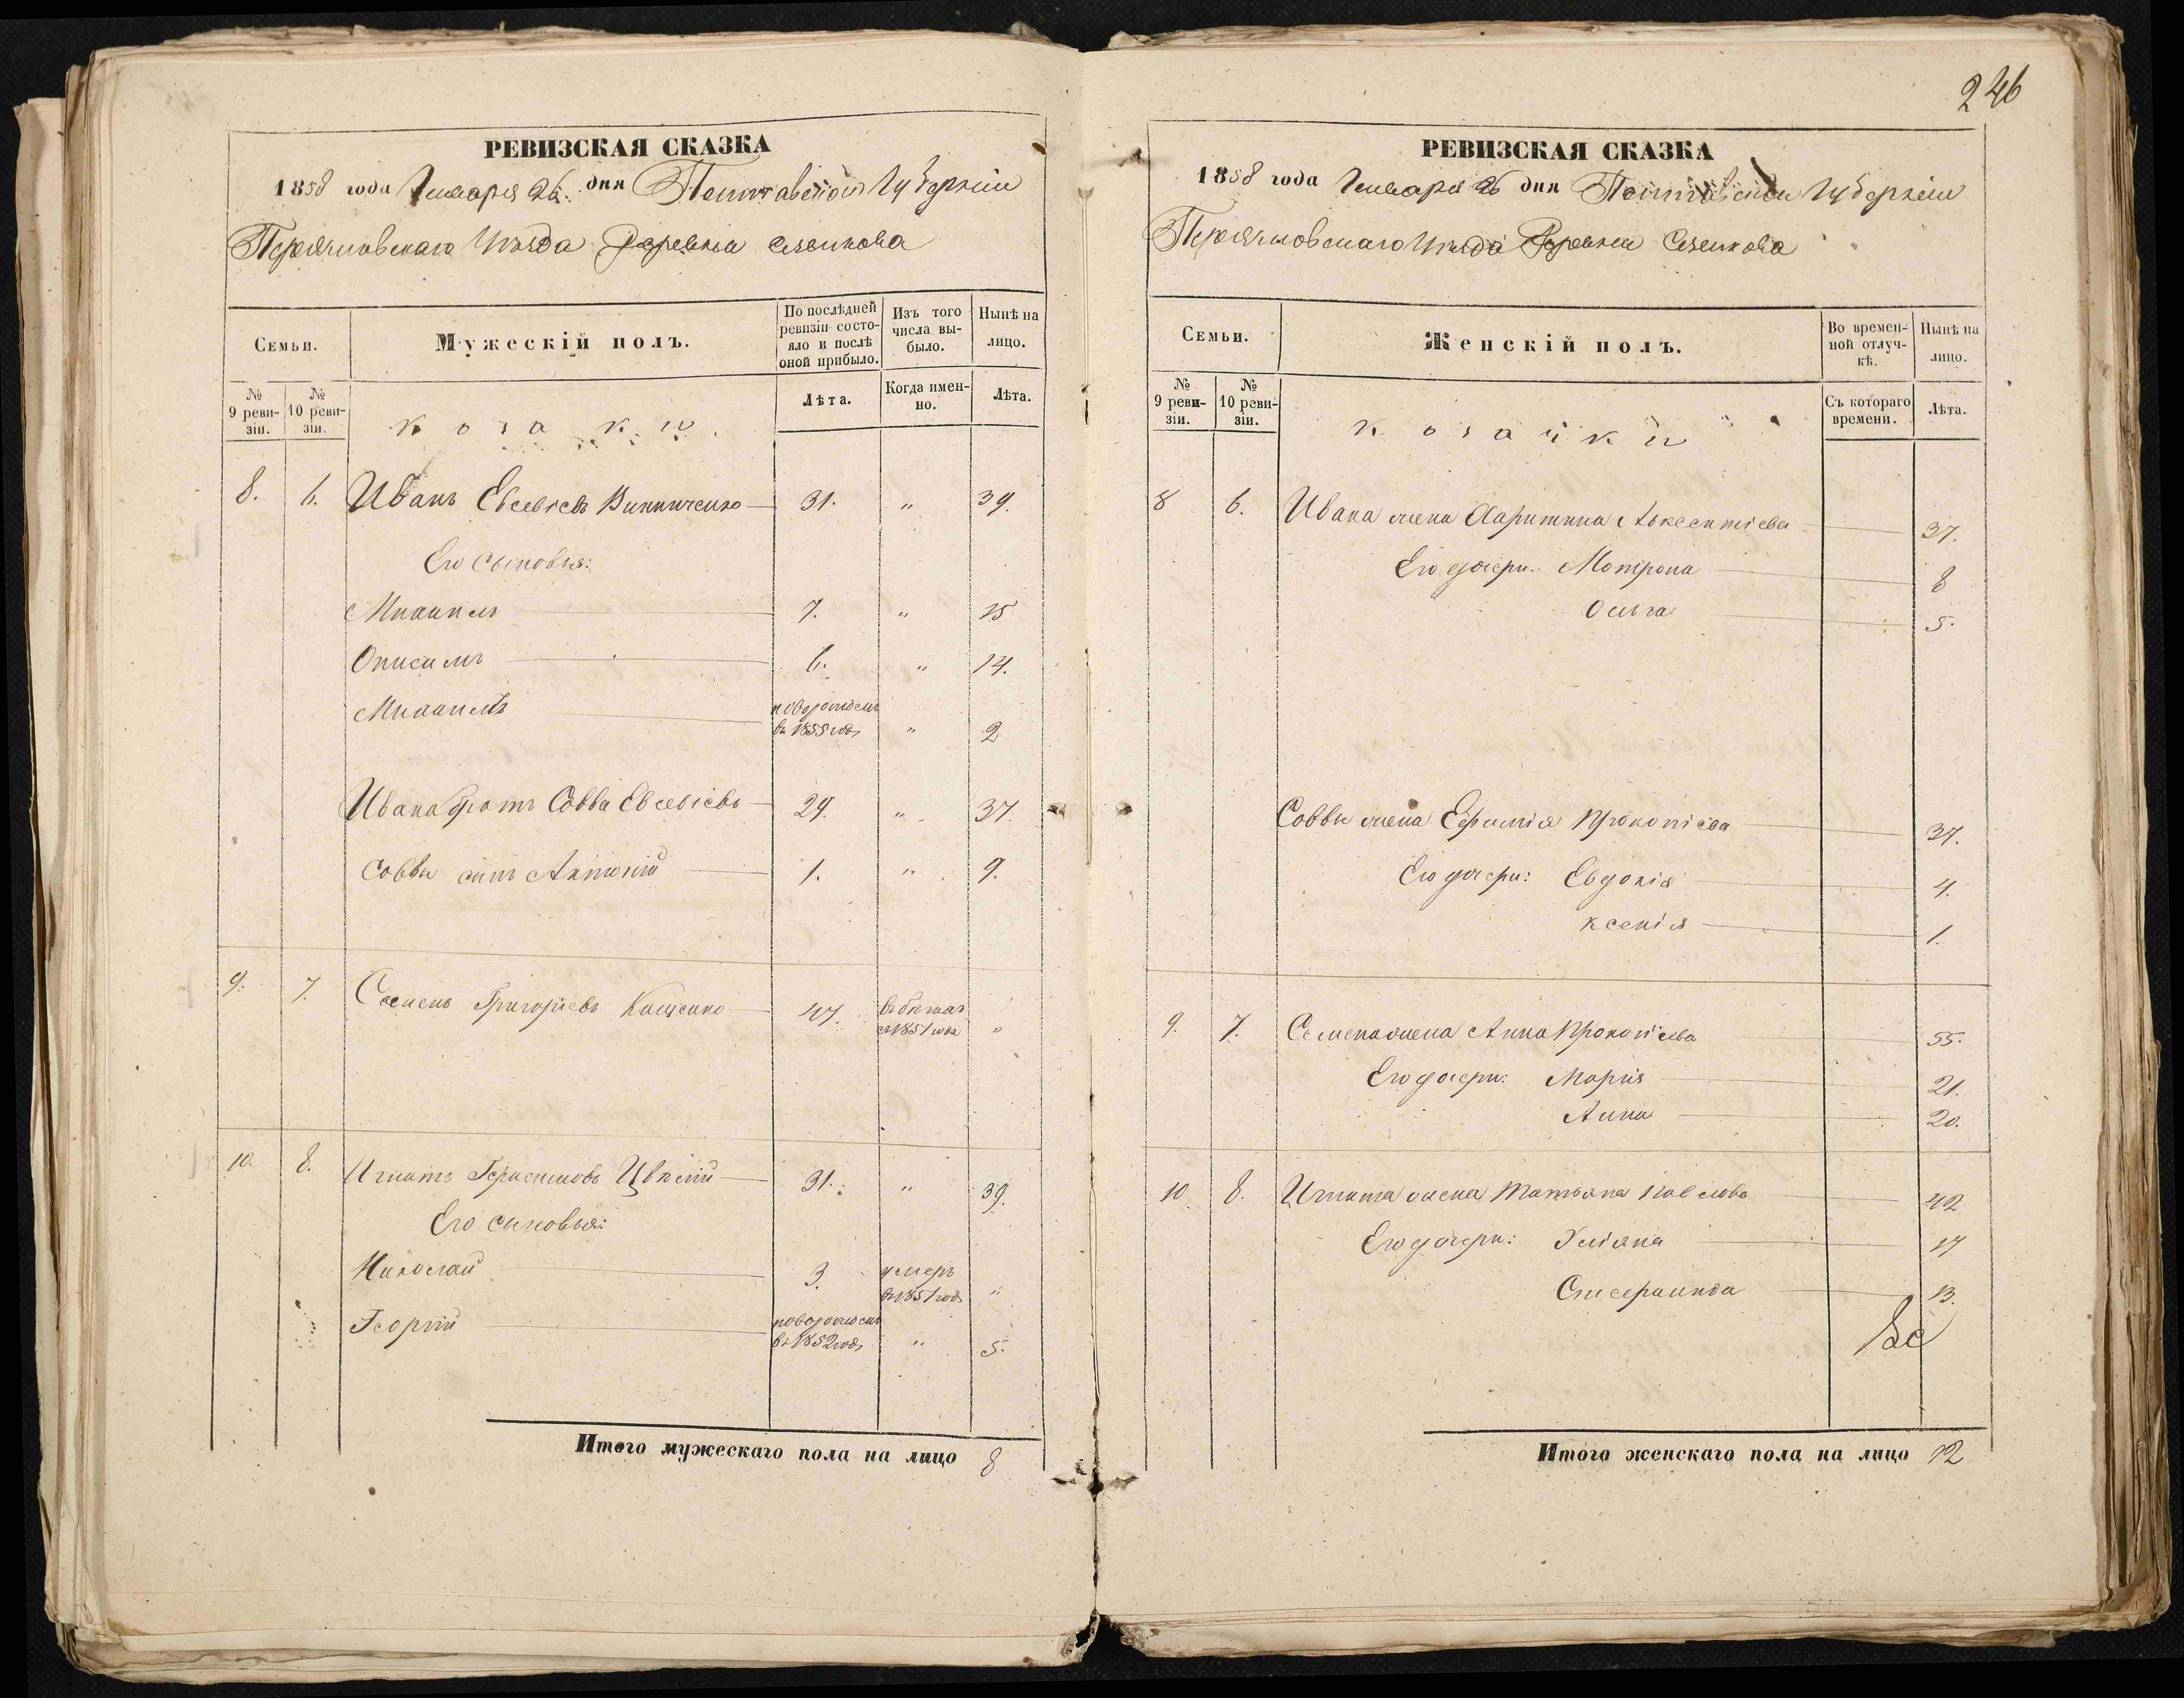 246
РЕВИЗСКАЯ СКАЗКА
1858 года Января 26 дня Полтавской Губерніи
Уѣзда Деревни
Семьи.
Мужескій полъ.
По послѣдней ревизіи состояло и послѣ оной прибыло.
Изъ того числа выбыло.
Нынѣ на лицо.
№ 9 ревизіи.
№ 10 ревизіи.
козаки.
Лѣта.
Когда именно.
Лѣта.
8. 6. Иванъ Евсевіевъ Винниченко 31. " 39.
Его сыновья:
Михаилъ 7. " 15
Онисимъ 6. " 14.
Михаилъ новорожденъ въ 1855 году " 2
Ивана братъ Савва Евсевіевъ 29. " 37.
Саввы сынъ Антоній 1. " 9.
9. 7. Семенъ Григорьевъ 47. въ бѣгахъ съ 1851 года "
10. 8. Игнатъ Герасимовъ 31. " 39.
Его сыновья:
Николай 3. умеръ въ 1851 году "
Георгій новорожденъ въ 1852 году " 5.
Итого мужескаго пола на лицо 8
РЕВИЗСКАЯ СКАЗКА
1858 года Января 26 дня Полтавской Губерніи
Уѣзда Деревни
Семьи.
Женскій полъ.
Во временной отлучкѣ.
Нынѣ на лицо.
№ 9 ревизіи.
№ 10 ревизіи.
козачки
Съ котораго времени.
Лѣта.
8 6. Ивана жена Харитина Авксентіева 37.
Его дочери: Мотрона 8
Ольга 5.
Саввы жена Ефимія Прокопіева 37.
Его дочери: Евдокія 4.
Ксенія 1.
9. 7. Семена жена Анна Прокопіева 55.
Его дочери: Марія 21.
Анна 20.
10 8. Игната жена Татьяна Павлова 42
Его дочери: Уліяна 17
13.
Итого женскаго пола на лицо 12